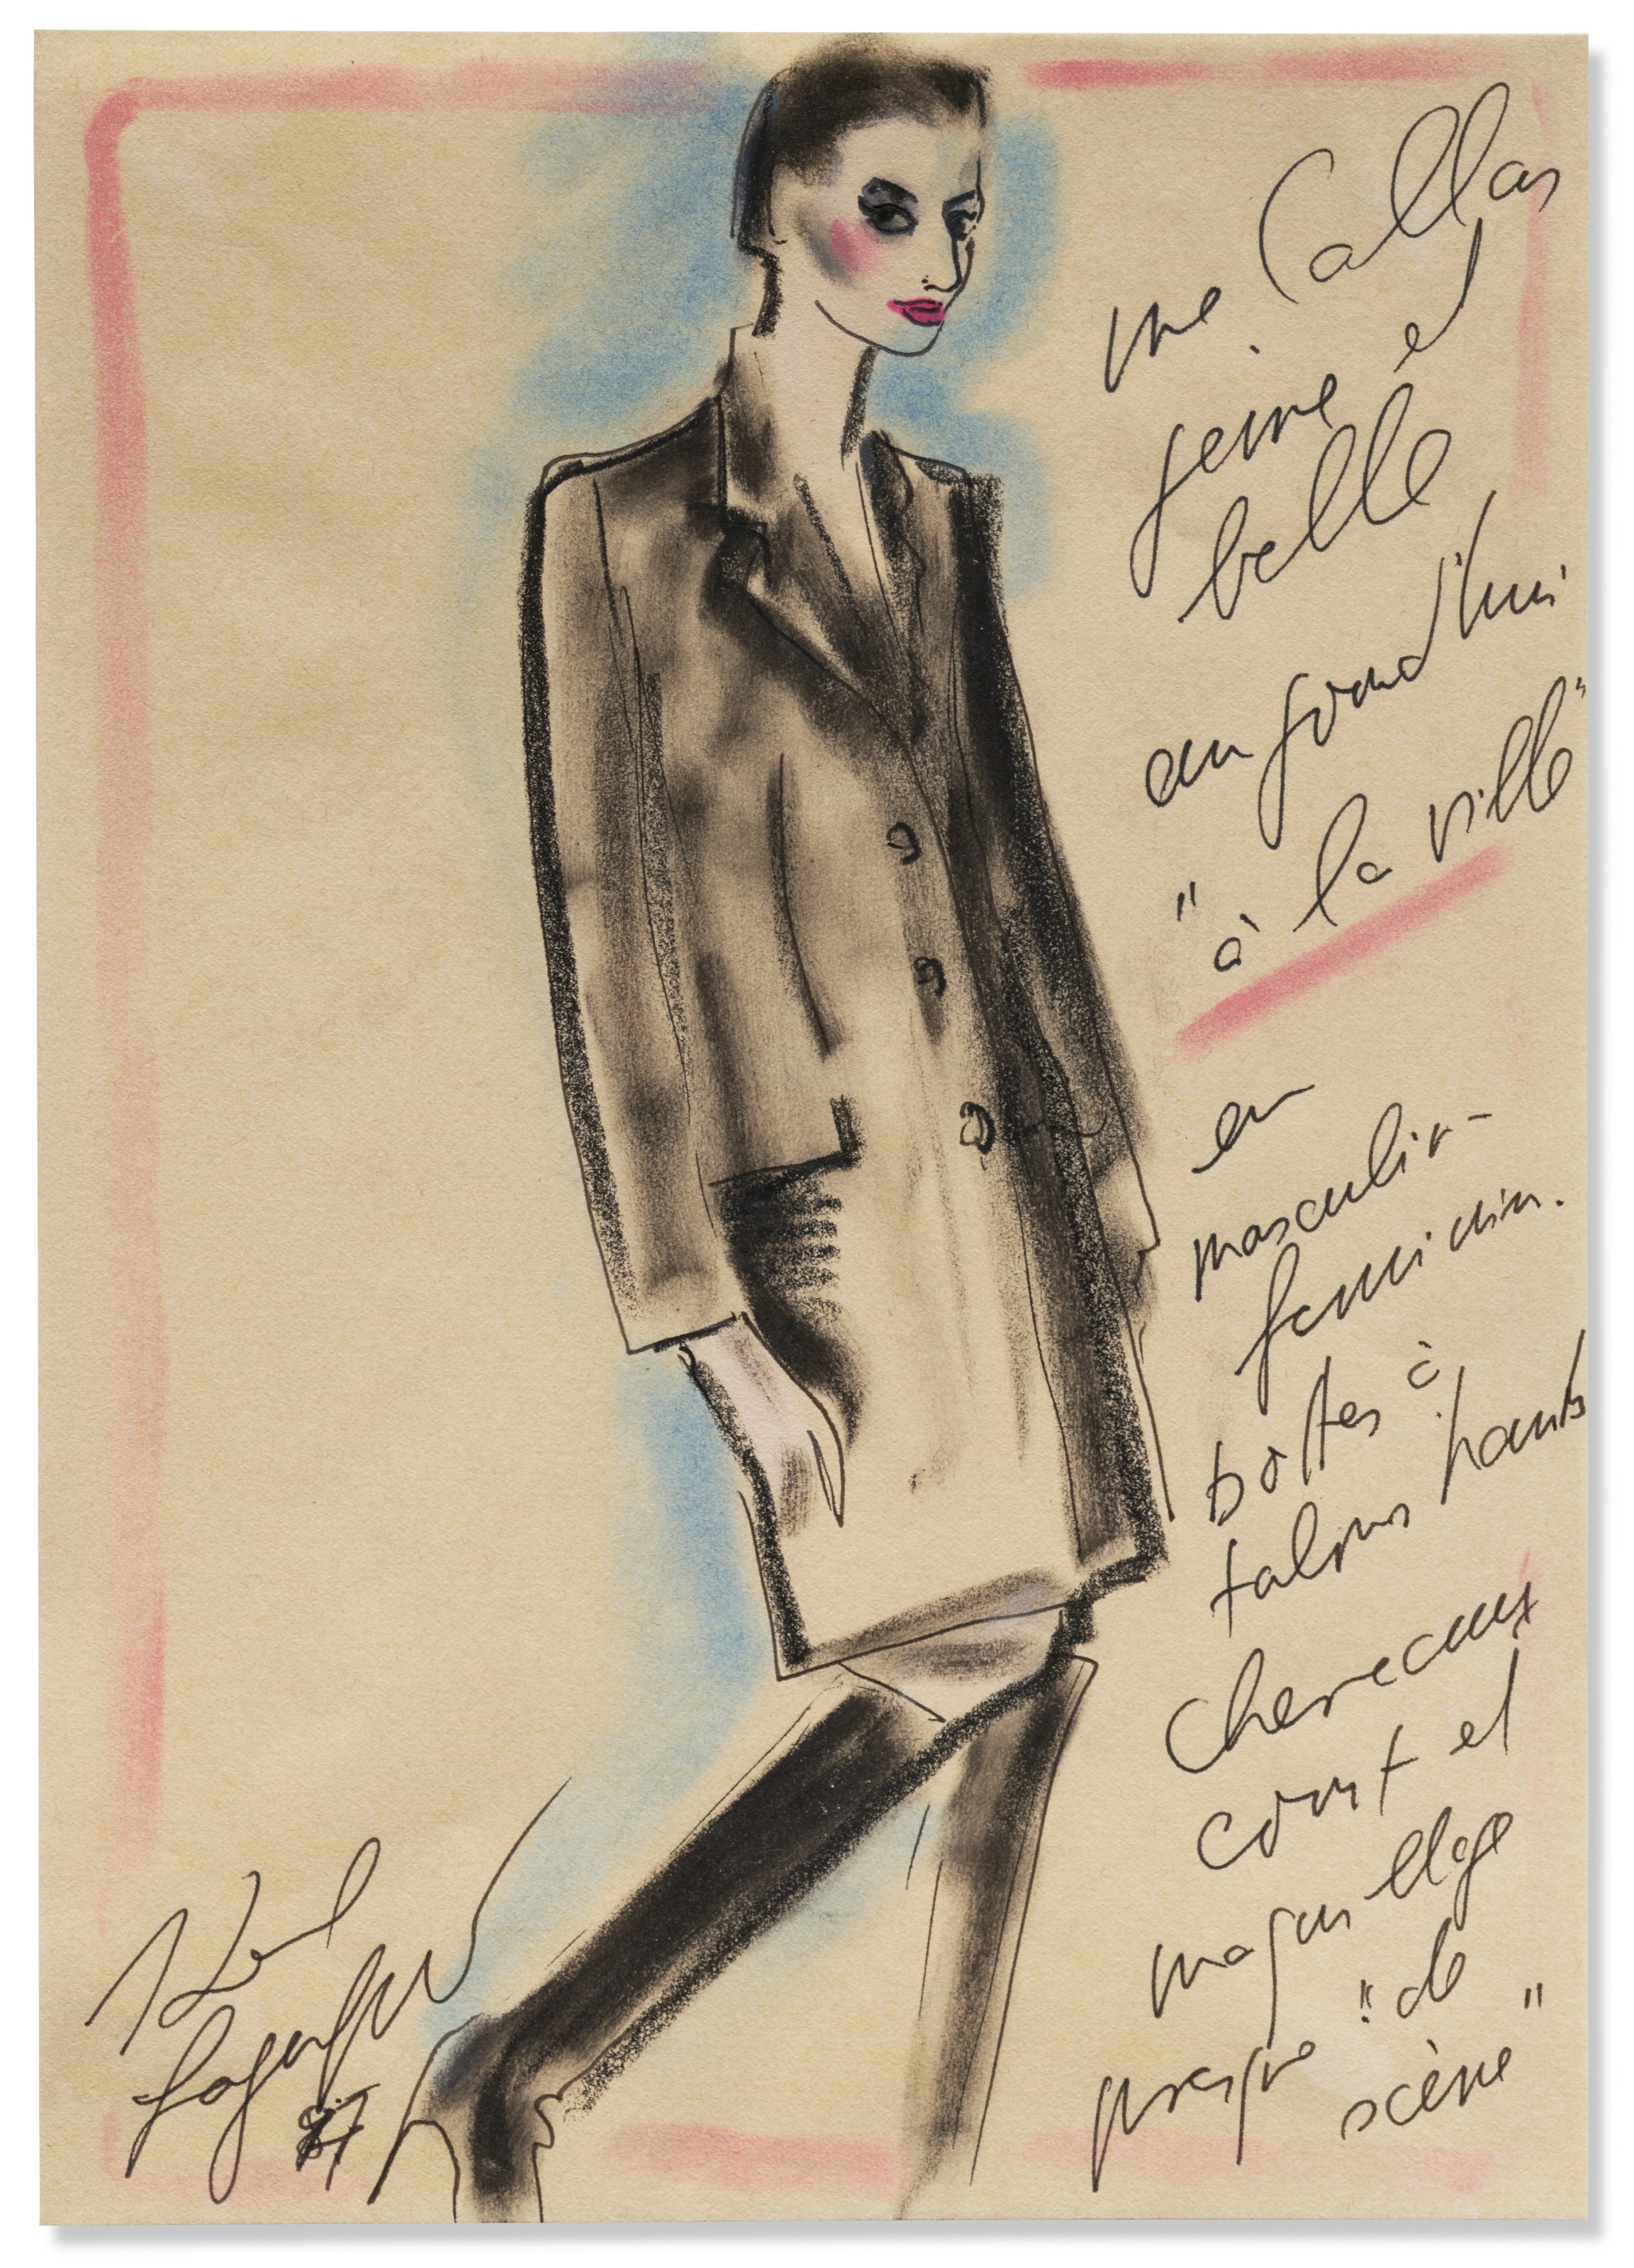 une Callas
jeune et
belle
aujourd'hui
"à la ville"
en
masculin-
feminin.
bottes à
talons hauts
cheveux
court et
maquillage
presque "de
scène"
Karl
Lagerfeld